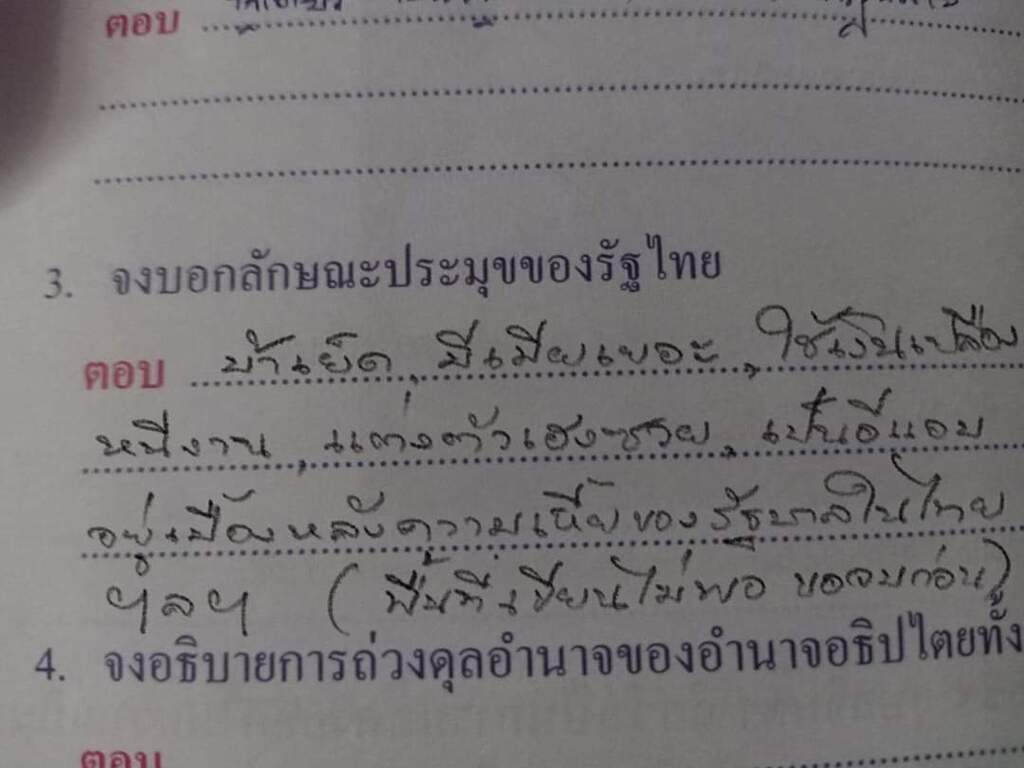 ตอบ
3. จงบอกลักษณะประมุขของรัฐไทย
ตอบ บ้าเย็ด, มีเมียเยอะ, ใช้เงินเปลือง
หนีงาน, แต่งตัวเฮงซวย, เป็นอีแอบ
อยู่เบื้องหลังความเหี้ยของรัฐบาลในไทย
ฯลฯ (พื้นที่เขียนไม่พอ ขอจบก่อน)
4. จงอธิบายการถ่วงดุลอำนาจของอำนาจอธิปไตยทั้ง
ตอบ